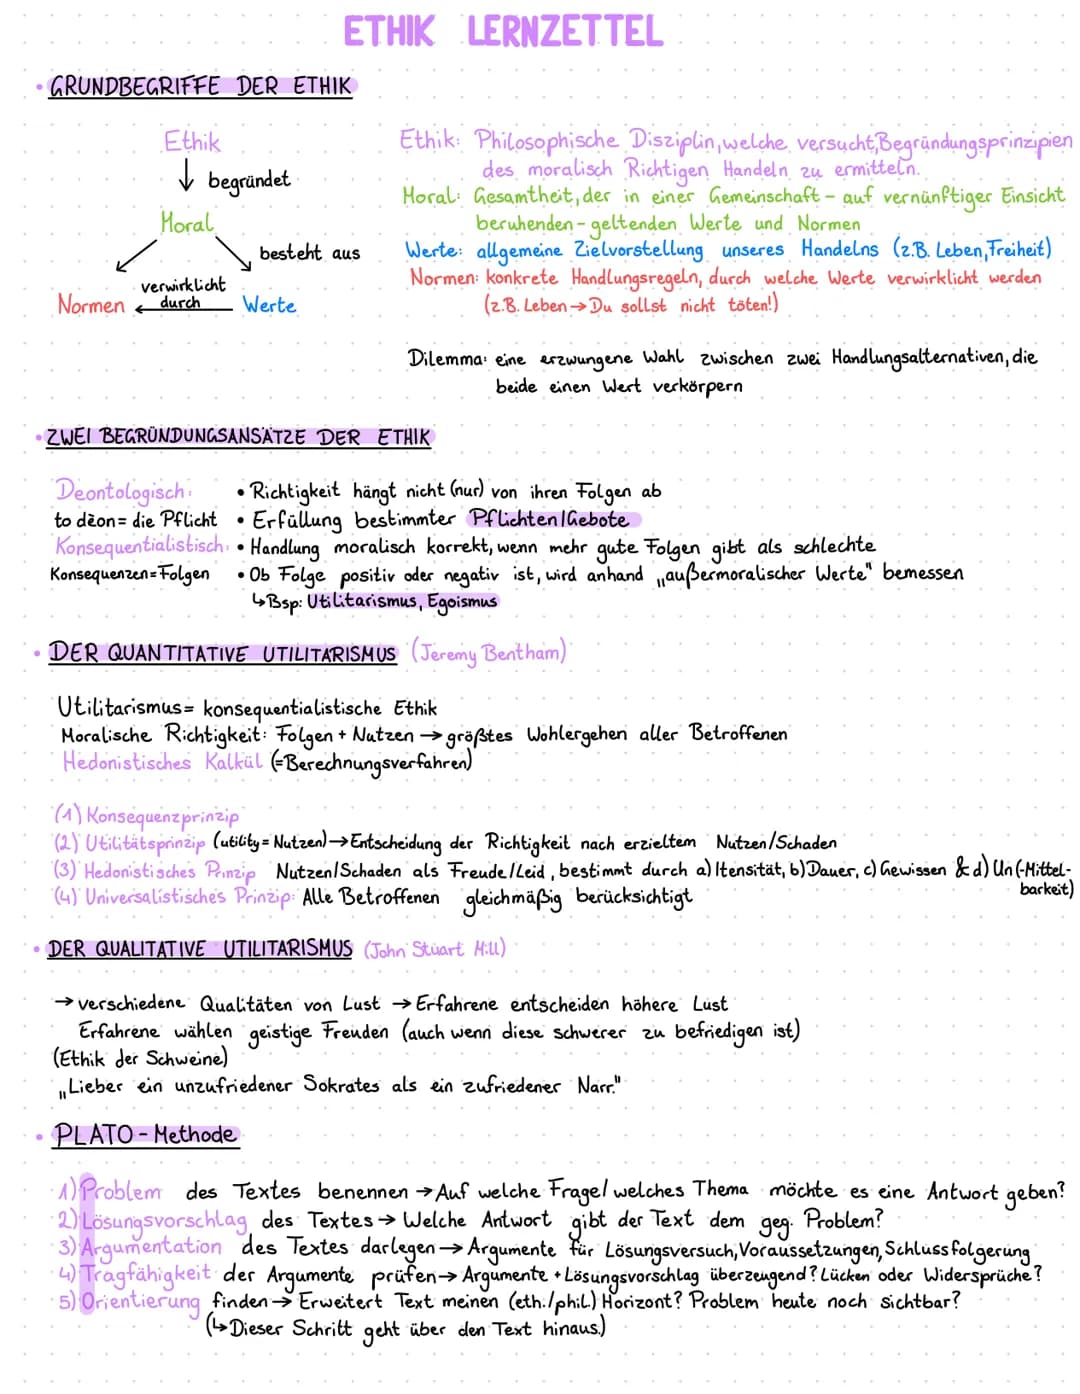 ETHIK LERNZETTEL
• GRUNDBEGRIFFE DER ETHIK
Ethik
begründet
Moral
besteht aus
verwirklicht
durch
Normen
Werte
Ethik: Philosophische Disziplin, welche versucht, Begründungsprinzipien
des moralisch Richtigen Handeln zu ermitteln.
Moral: Gesamtheit, der in einer Gemeinschaft - auf vernünftiger Einsicht
beruhenden - geltenden Werte und Normen
Werte: allgemeine Zielvorstellung unseres Handelns (z.B. Leben, Freiheit)
Normen: konkrete Handlungsregeln, durch welche Werte verwirklicht werden
(z.B. Leben → Du sollst nicht töten!)
Dilemma: eine erzwungene Wahl zwischen zwei Handlungsalternativen, die
beide einen Wert verkörpern
• ZWEI BEGRÜNDUNGSANSÄTZE DER ETHIK
Deontologisch: • Richtigkeit hängt nicht (nur) von ihren Folgen ab
to dèon = die Pflicht • Erfüllung bestimmter Pflichten/Gebote
Konsequentialistisch: • Handlung moralisch korrekt, wenn mehr gute Folgen gibt als schlechte
Konsequenzen = Folgen • Ob Folge positiv oder negativ ist, wird anhand „außermoralischer Werte" bemessen
↳ Bsp: Utilitarismus, Egoismus
• DER QUANTITATIVE UTILITARISMUS (Jeremy Bentham)
Utilitarismus = konsequentialistische Ethik
Moralische Richtigkeit: Folgen + Nutzen → größtes Wohlergehen aller Betroffenen
Hedonistisches Kalkül (=Berechnungsverfahren)
(1) Konsequenzprinzip
(2) Utilitätsprinzip (utility = Nutzen) → Entscheidung der Richtigkeit nach erzieltem Nutzen/Schaden
(3) Hedonistisches Prinzip Nutzen/Schaden als Freude/Leid, bestimmt durch a) Itensität, b) Dauer, c) Gewissen & d) Un(-Mittel-
barkeit)
(4) Universalistisches Prinzip: Alle Betroffenen gleichmäßig berücksichtigt
• DER QUALITATIVE UTILITARISMUS (John Stuart Mill)
→ verschiedene Qualitäten von Lust → Erfahrene entscheiden höhere Lust
Erfahrene wählen geistige Freuden (auch wenn diese schwerer zu befriedigen ist)
(Ethik der Schweine)
„Lieber ein unzufriedener Sokrates als ein zufriedener Narr."
• PLATO - Methode
1) Problem des Textes benennen → Auf welche Frage/welches Thema möchte es eine Antwort geben?
2) Lösungsvorschlag des Textes → Welche Antwort gibt der Text dem geg. Problem?
3) Argumentation des Textes darlegen → Argumente für Lösungsversuch, Voraussetzungen, Schlussfolgerung
4) Tragfähigkeit der Argumente prüfen → Argumente + Lösungsvorschlag überzeugend? Lücken oder Widersprüche?
5) Orientierung finden → Erweitert Text meinen (eth./phil.) Horizont? Problem heute noch sichtbar?
(↳ Dieser Schritt geht über den Text hinaus.)